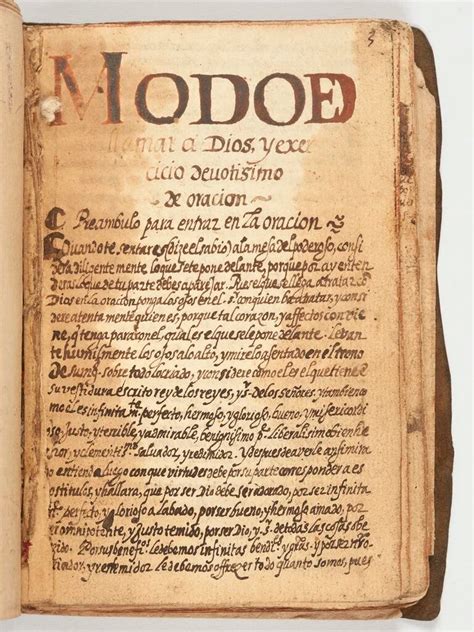 3
MODO D
llamar a Dios, y exer
cicio devotissimo
de oracion
Preambulo para entrar en la oracion
Quando te sentares (dize el sabio) a la mesa del poderoso, consi
dera diligente mente, lo que se te pone delante, porque por a y enten
de tu parte debes aparejar. Pues el que se llega, a tratar cō
Dios en la oracion ponga los ojos en el s.r con quien ha tratar, y consi
dere atenta mente quien es, porque tal corazon, y affectos convie
ne, q̃ tenga para con el, qual es el que se le pone delante. Levan
te humilmente los ojos a lo alto, y mirelo asentado en el trono
de su mag.d sobre todo lo criado, y considere como es el que tiene ē
su vestidura escrito rey de los reyes, y s.r de los señores, y tambien co
mo el es infinita m.te perfecto, hermoso, y glorioso, bueno, misericordi
oso, justo, y terrible, y admirable, benignisimo p.e liberalisimo bienhe
chor, y clementis.mo Salvador, y redemidor. Y despues de averle asi mira
do entienda luego con que virtudes debe por su parte corresponder a es
tos titulos, y hallara, que por ser Dio debe ser adorado, por ser infinita
m.te perfecto, y glorioso alabado, por ser bueno, y hermoso amado, por
omnipotente, y justo temido, por ser Dio, y s.r de todas las cosas obe
cido. Por sus benefi.os le debemos infinitas bend.s y gr.as y por ser nro
criador, y redemidor le debemos offrezer todo quanto somos, pues